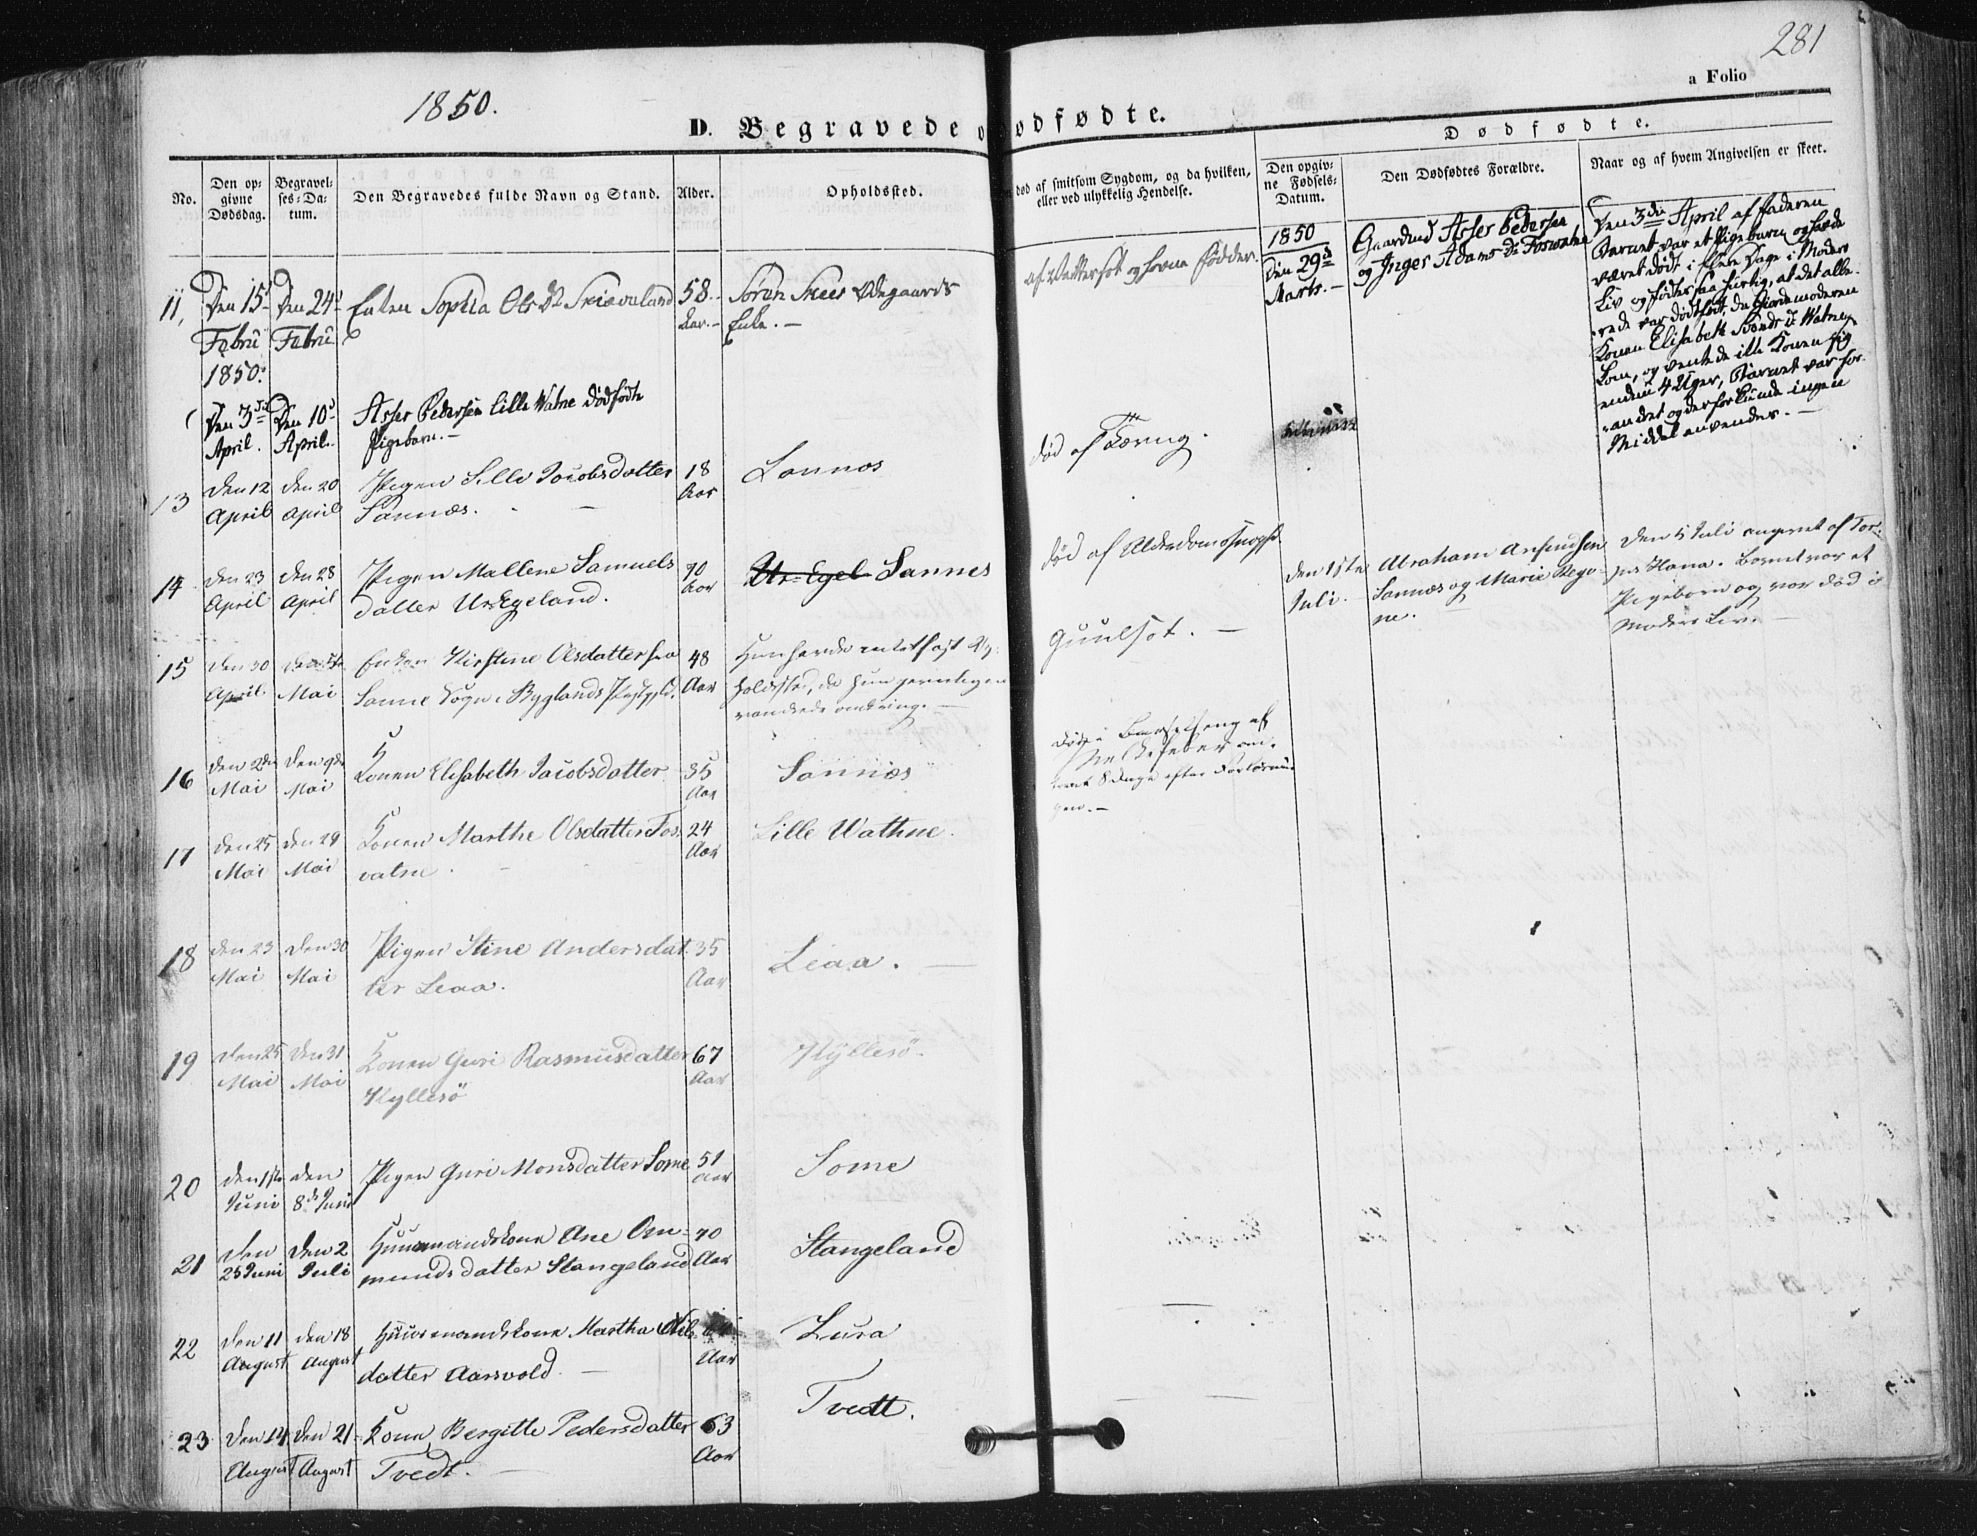 281
a Folio
1850.
D. Begravede o
ødfødte.
Dødfødte.
No.
Den op-
givne
Dødsdag.
Begravel-
ses-Da-
tum.
Den Begravedes fulde Navn og Stand.
Alder.
Opholdssted.
død af smitsom Sygdom, og da hvilken,
eller ved ulykkelig Hendelse.
Den opgiv-
ne Fødsels-
Datum.
Den Dødfødtes Forældre.
Naar og af hvem Angivelsen er skeet.
11,
Den 15d
Febru
1850.
Den 24d
Febru
Enken Sophia Ols Dr Skiæveland
58
Aar.-
Sørin Skees Ødegaards
Enke.-
1850
Den 29d
Marts.-
Gaardmd Asser Pedersen
og Inger Adams Dr Forvatne
Den 3die April af Faderen
Barnet var et Pigebarn og havde
været dødt i flere Dage i Moders
Liv og fødtes saa hurtig, at det alle-
rede var dødfødt, da Giordemoderen
Konen Elisabeth Svends Dr Watne
kom, og ventede ikke Konen sig
endnu 4 Uger, Barnet var for-
raadnet og derfor kunde ingen
Middel anvendes.-
Den 3die
April.
Den 10d
April.
Asser Pedersen Lille Watne dødfødte
Pigebarn.-
13
den 12
April
den 20
April
Pigen Sille Jacobsdatter
Sannæs.
18
Aar
Sannæs
død af Tæring.
14
den 23
April
den 28
April
Pigen Mallene Samuels
datter Ur-Egeland.
70
Aar
Ur-Egel Sannes
død af
den 1ste
Juli.
Abraham
Sannæs og Marie Regi-
ne.
Den 5 Juli angivet af Tor-
Hana. Barnet var et
Pigebarn og var død i
Moders Liv.
15
den 30
April.
Mai
Enken Kirstine Olsdatter fra
Sanne Sogn, Byglands Præstegjeld.
48
Aar
Hun havde intet fast Op-
holdssted, da hun jevnligen
vandrede omkring.-
Guulsot.-
16
den 2den
Mai
den 9de
Mai
Konen Elisabeth Jacobsdatter
35
Aar
Sannæs
døde i Barselseng af
Melkefeber om-
trent 8 Dage efter Forløsnin-
gen.-
17
den 25
Mai
den 29
Mai
Konen Marthe Olsdatter For-
vatne.
24
Aar
Lille Wathne.
18
den 23
Mai
den 30
Mai
Pigen Stine Andersdat-
ter Leaa.
35
Aar
Leaa.
19
den 25
Mai
den 31
Mai
Konen Guri Rasmusdatter
Hyllesø
67
Aar
Hyllesø.
20
den 1ste
Juni
den
8de Juni
Pigen Guri Monsdatter Some
51
Aar
Some
21
den
25 Juni
den 2
Juli
Huusmandskone Ane Om-
mundsdatter Stangeland
70
Aar
Stangeland
22
den 11
August
den 18
August
Huusmandskone Martha Nils
datter Aarsvold.
Aar
Lura
23
den 14
August
den 21
August
Kone Bergitte Pedersdatter
Tvedt.
63
Aar
Tvedt.